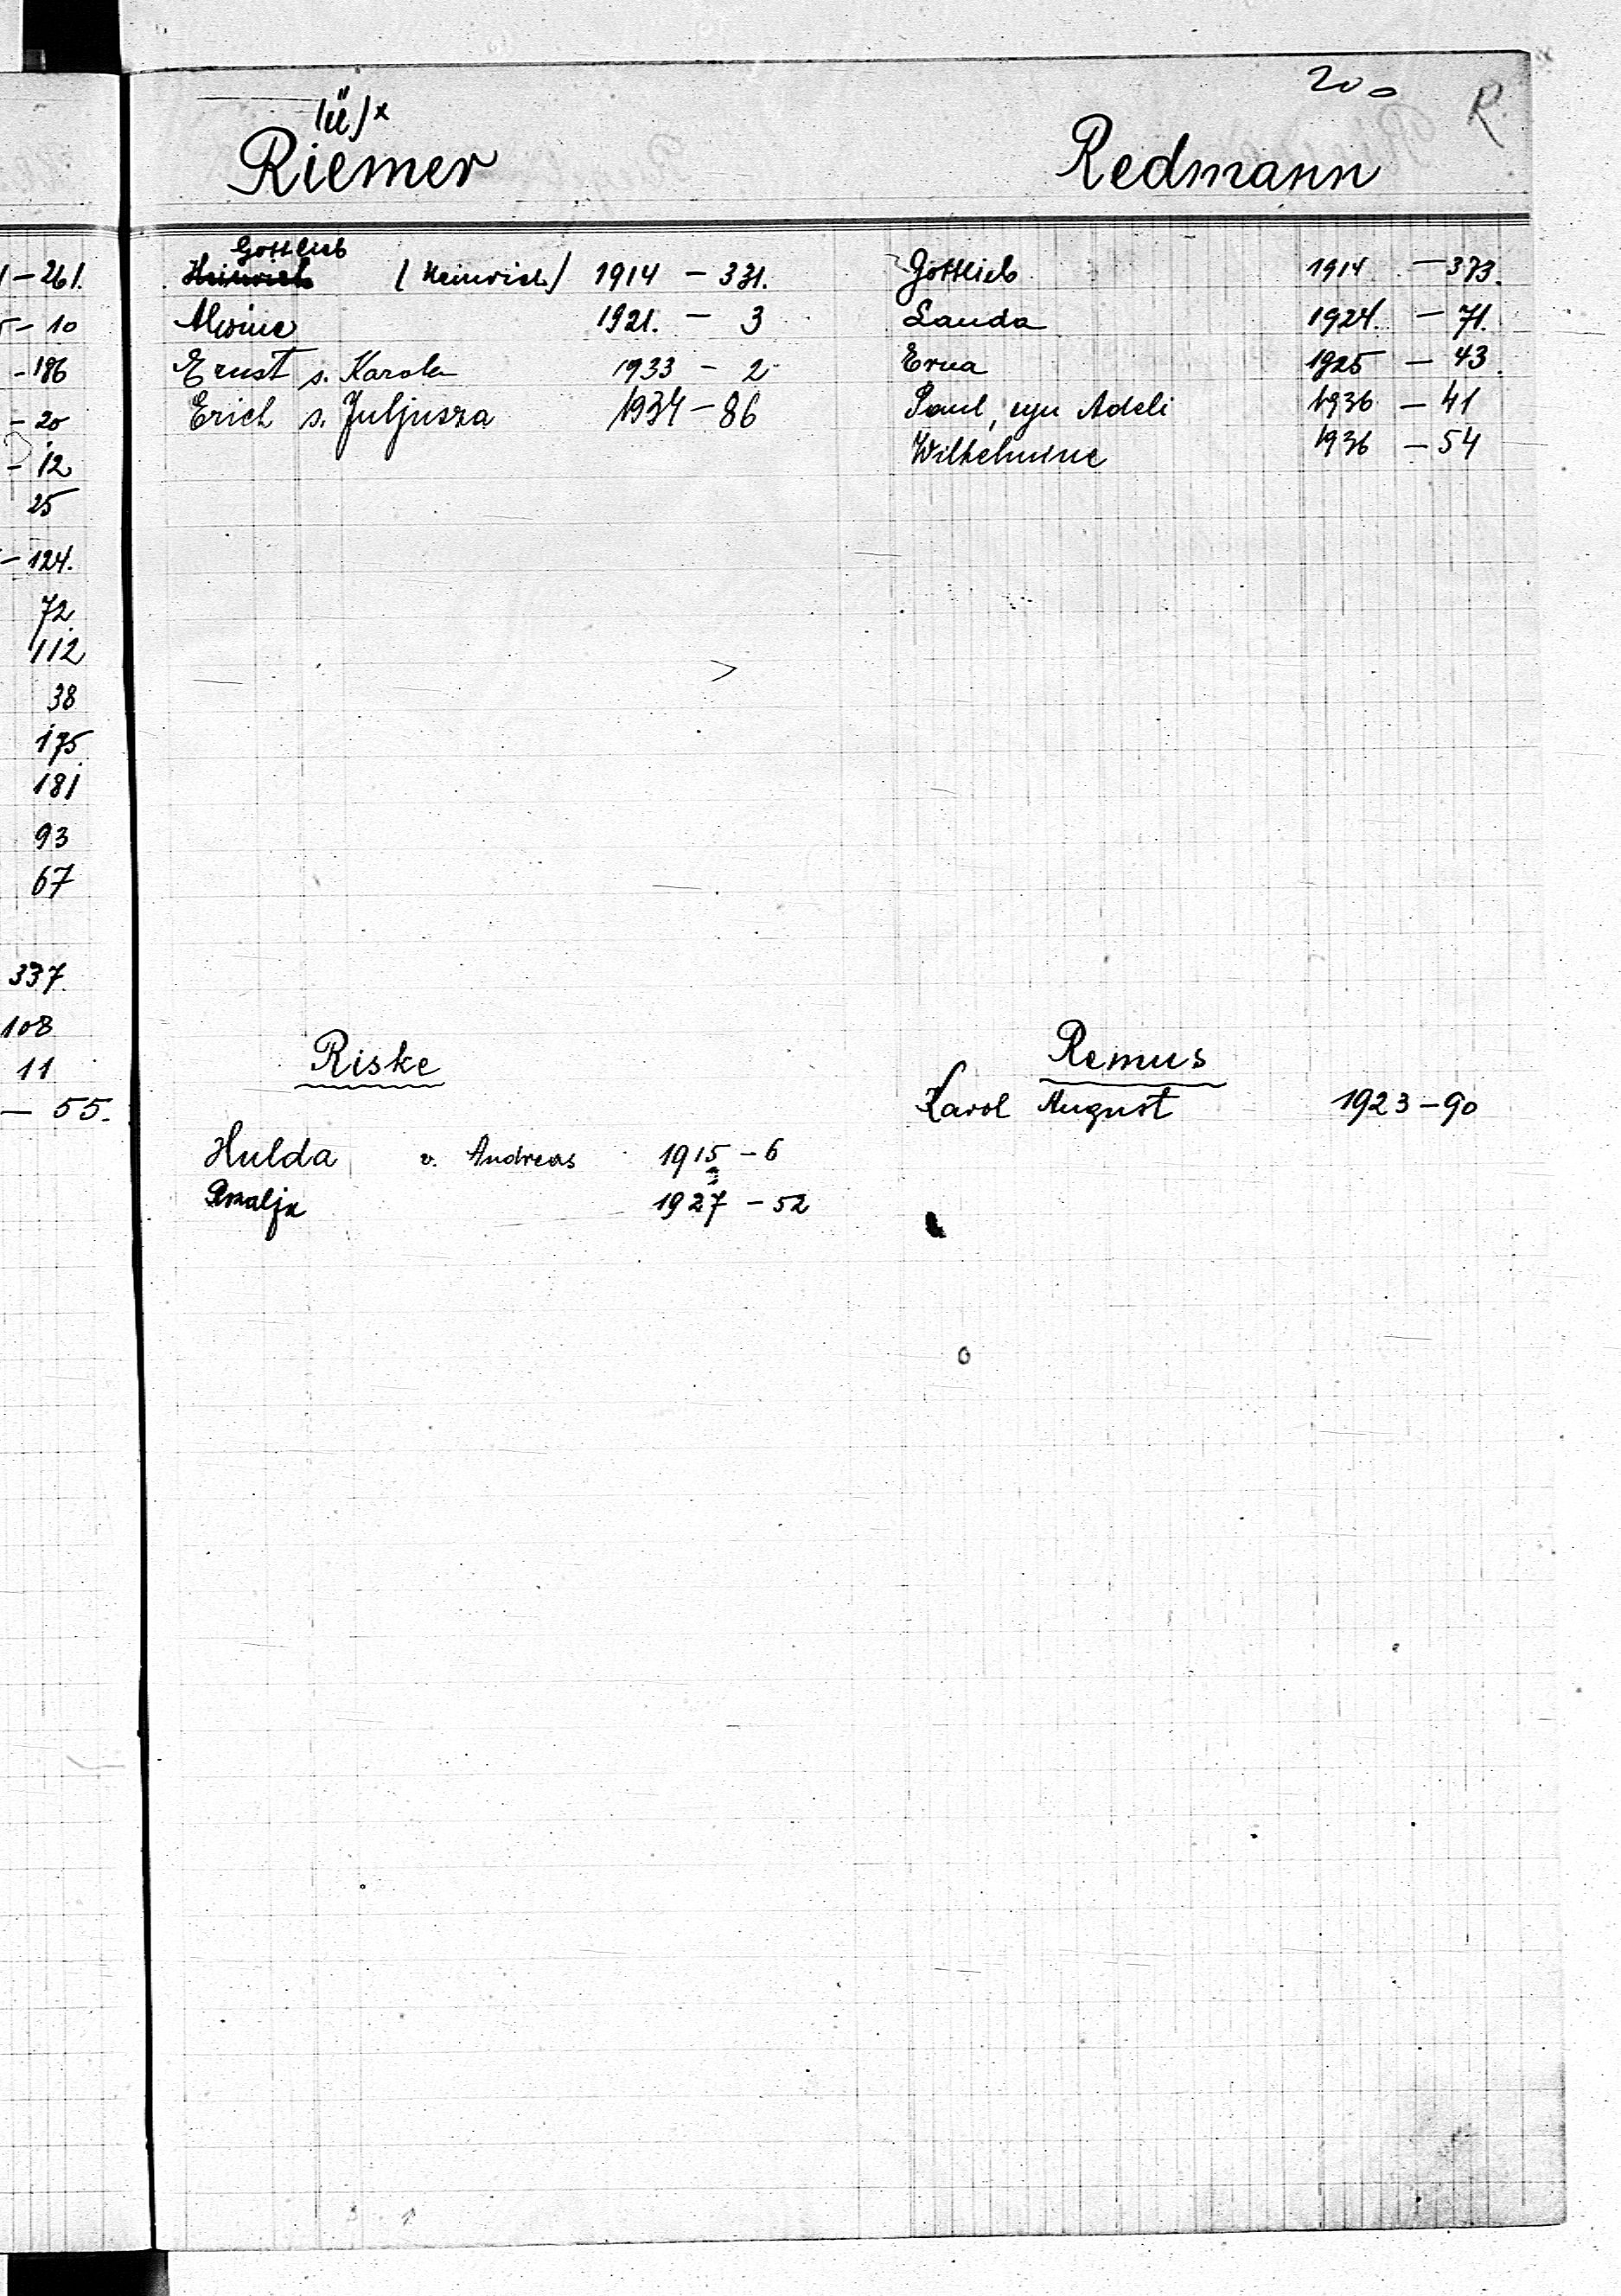 200
R
(ü)x
Riemer
Gottlieb
Heinrich (Heinrich) 1914 - 331.
Alwine 1921. - 3
Ernst s. Karola 1933 - 2
Erich s. Juljusza 1934 - 86
Redmann
Gottlieb 1914 - 373.
Lauda 1924. - 71.
Erna 1925 - 43
Paul, syn Adeli 1936 - 41
Wilhelmine 1936 - 54
Riske
Hulda v. Andreas 1915 - 6
Amalja 1927 - 52
Remus
Karol August 1923 - 90
- 261.
- 10
- 186
- 20
- 12
25
- 124.
72
112
38
175
181
93
67
337.
108
11
- 55.